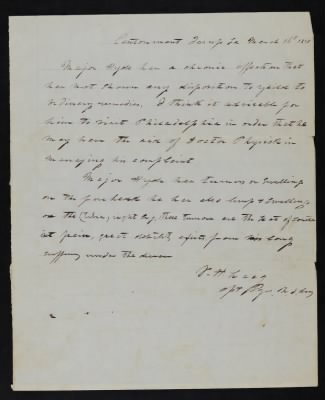 Cantonment Jesup La March 16th
Major Hyde has a chronic affection that
has not shown any disposition to yield to
ordinary remedies, I think it advisable for
him to visit Philadelphia in order that he
may have the aid of Doctor Physick in
managing his complaint
Major Hyde has tumors or swellings
on the forehead he has also lumps & swelling
on the right leg, These tumors are the seat of
pain, great debility from his long
suffering under the disease
Asst